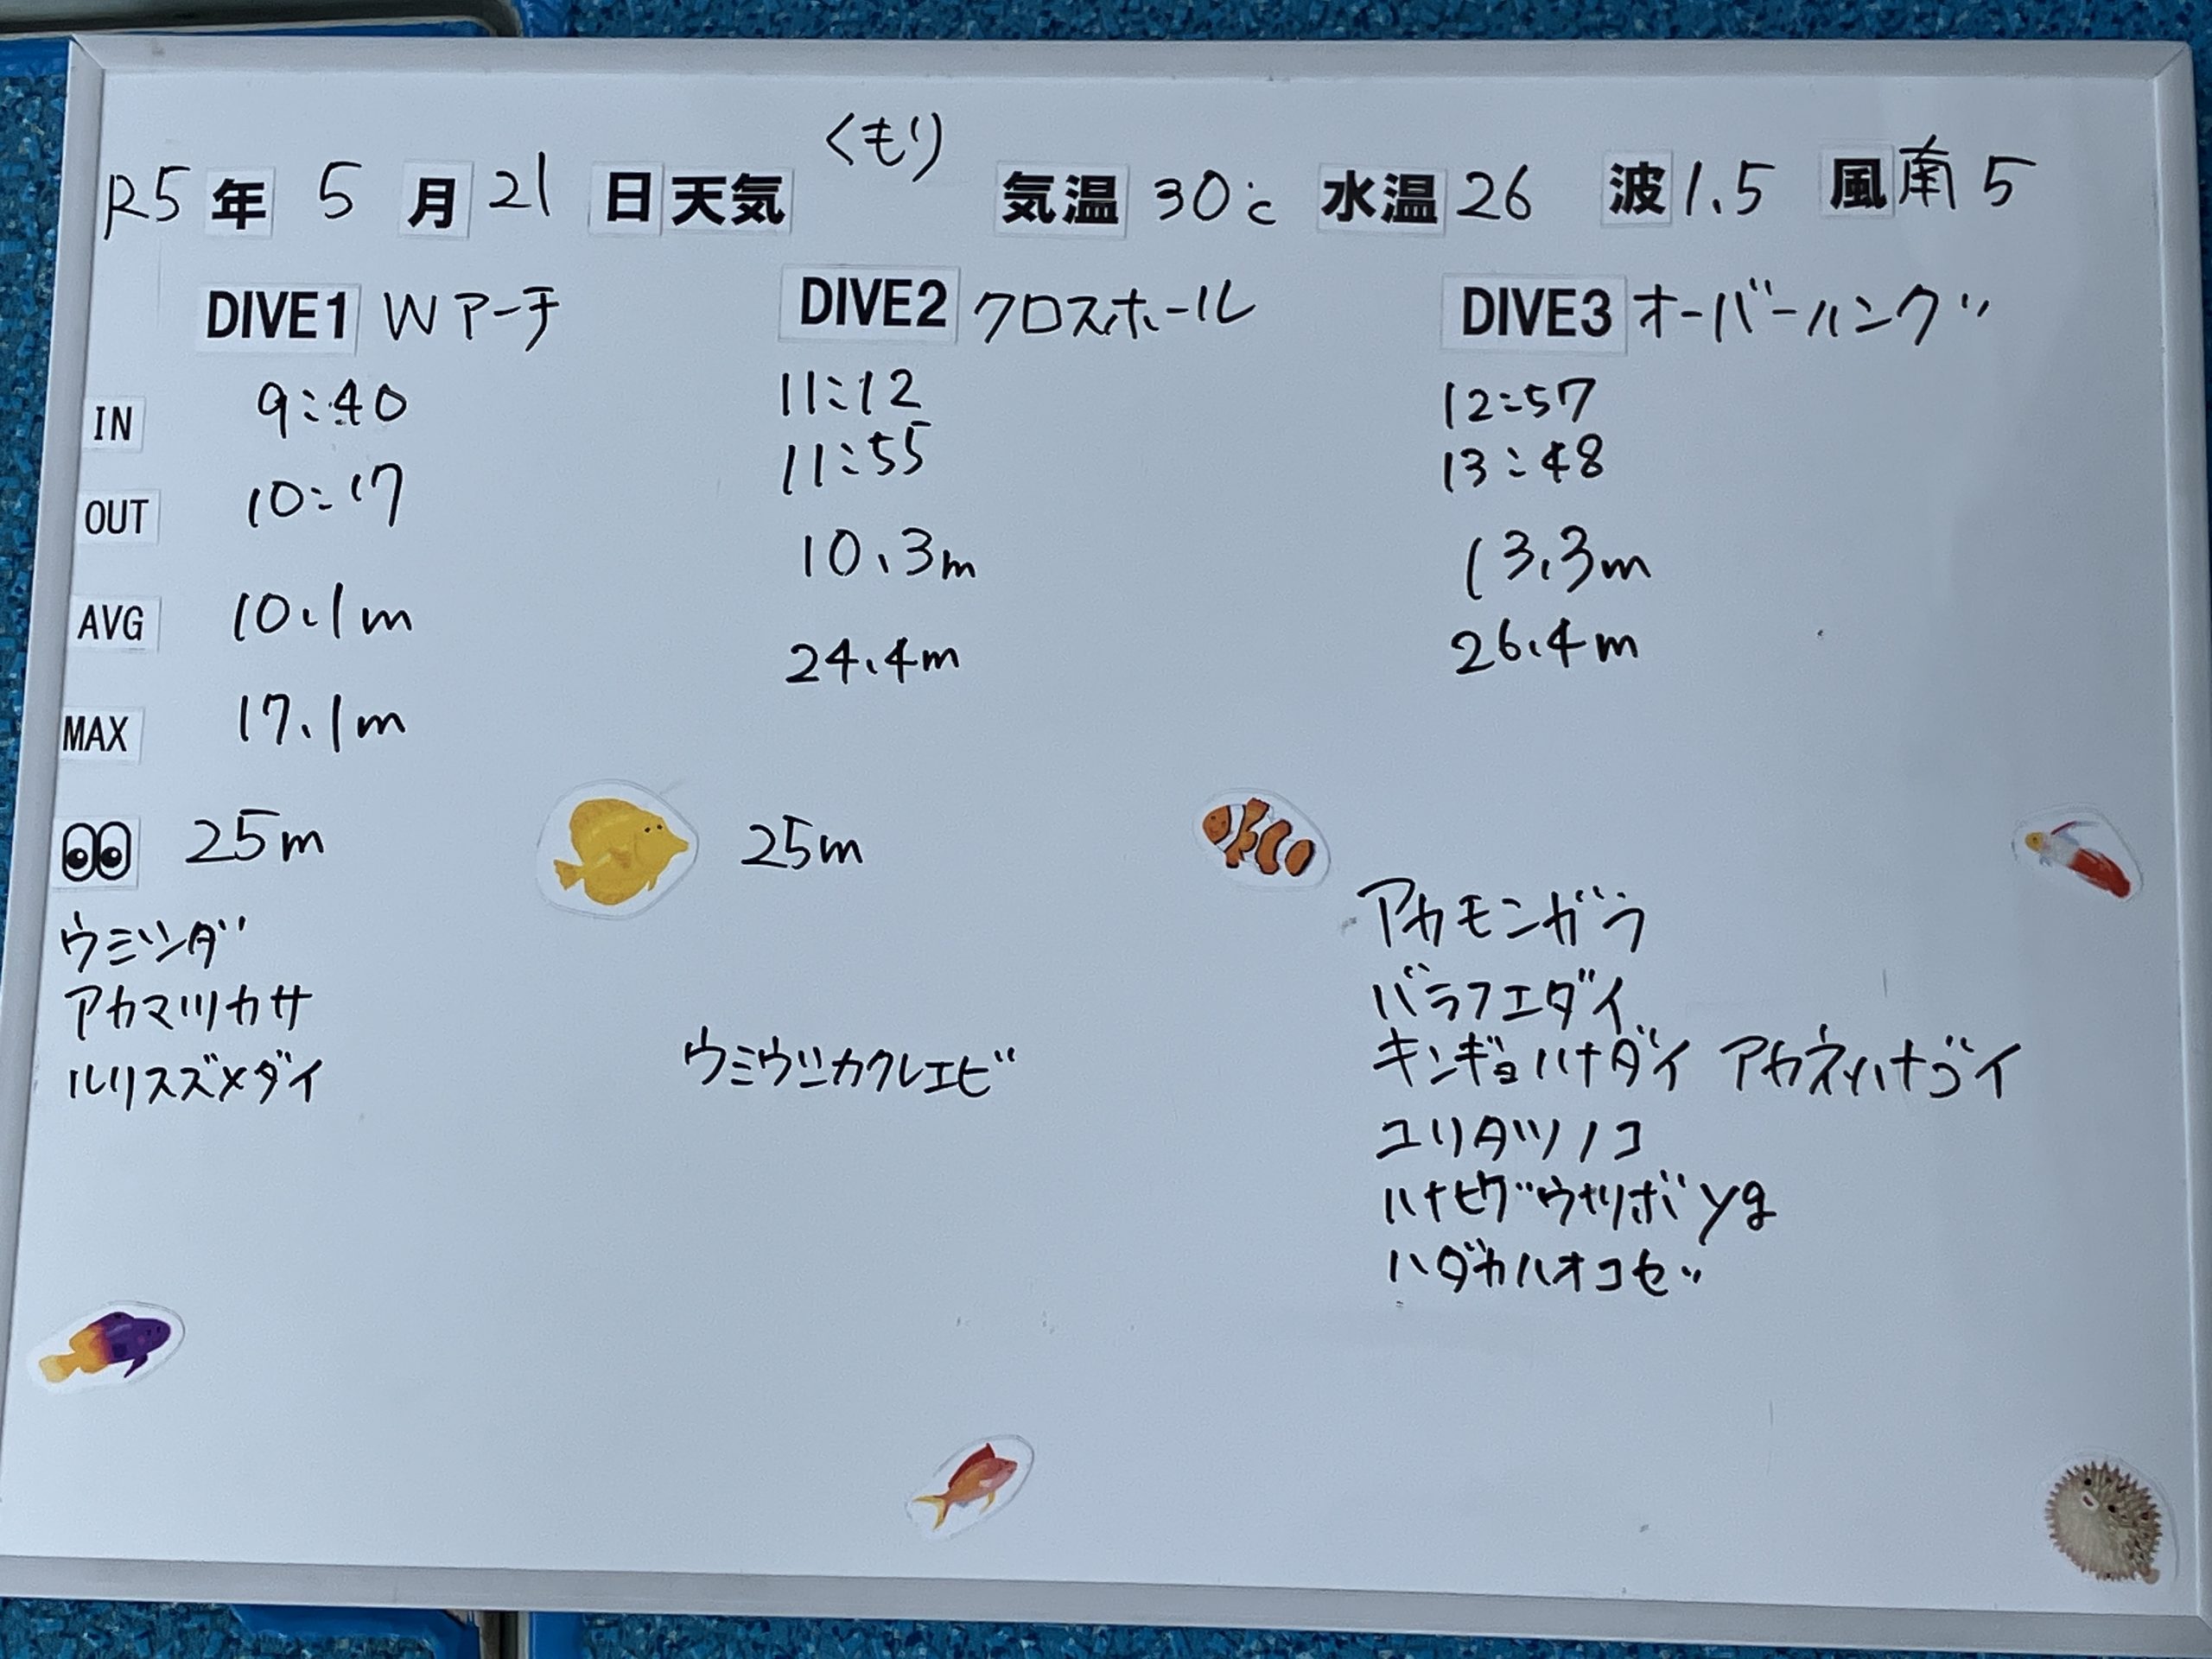 R5年 5月21日 天気 くもり 気温 30℃ 水温 26 波 1.5 風 南 5
DIVE1 Wアーチ
DIVE2 クロスホール
DIVE3 オーバーハング
IN 9:40
11:12
12:57
OUT 10:17
11:55
13:48
AVG 10.1m
10.3m
13.3m
MAX 17.1m
24.4m
26.4m
25m
25m
アカマツカサ
ルリスズメダイ
ウミウシカクレエビ
アカモンガラ
バラフエダイ
キンギョハナダイ アカネハナゴイ
ユリタツノコ
ハナヒゲウツボ yg
ハダカハオコゼ